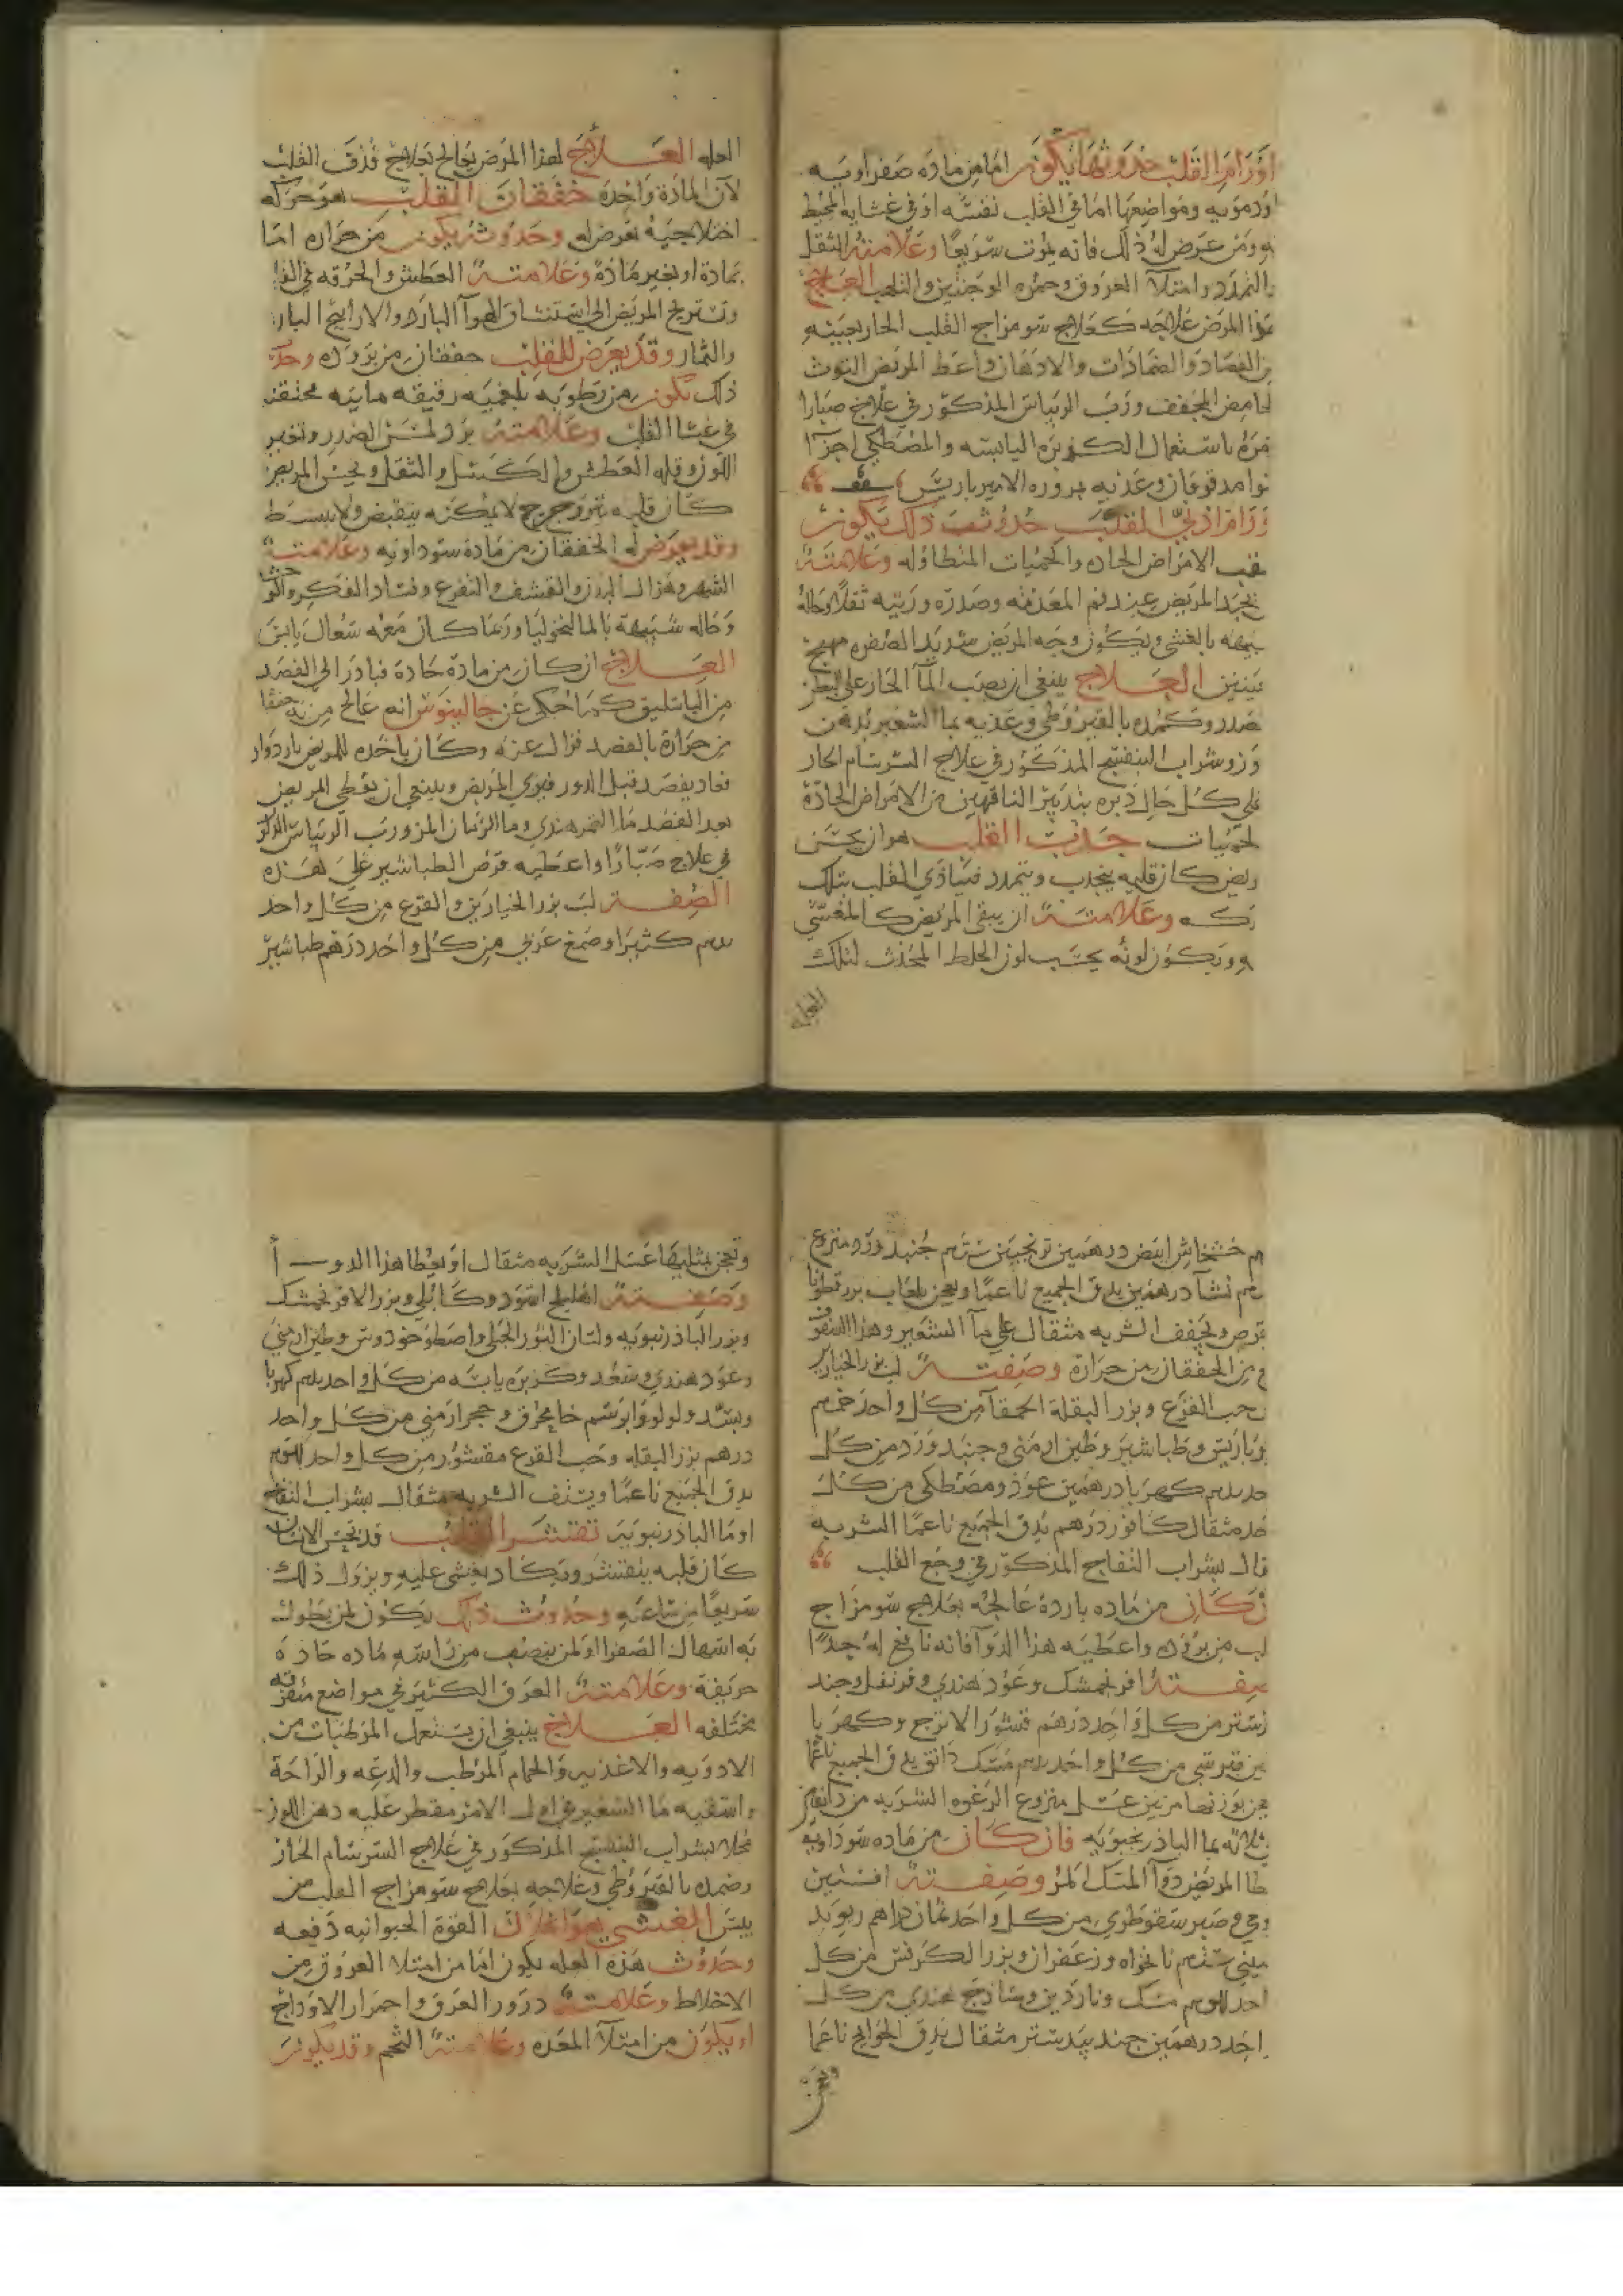 اورام القلب حدوثها يكون اما من ماده صفراويه
اودمويه ومواضعها اما في القلب نفسه او في غشايه المحيط
به ومن عرض له ذلك فانه يموت سريعا وعلامته الثقل
والتمدد وامتلآ العروق وحمره الوجنتين والتلهب العلاج
هذا المرض علاجه كعلاج سو مزاج القلب الحار بعينه
من الفصاد والضمادات والادهان واعط المريض التوت
الحامض المجفف ورب الريباس المذكور في علاج صبارا
ومره باستعمال الكزبره اليابسه والمصطكي اجزآ
سوا مدقوقان وغذيه بزوره الاميرباريس
حدوث ذلك يكون
عقب الامراض الحاده والحميات المتطاوله وعلامته
يجد المريض عند فم المعده وصدره وريته ثقلا وحاله
شبيهه بالغشي ويكون وجه المريض شديد الصفره مهيج
العينين العلاج ينبغي ان يصب المآ الحار علي البطن
والصدر وكمده بالقيروطي وغذيه بما الشعير بدهن
لوز وشراب البنفسج المذكور في علاج السرسام الحار
علي كل حال دبره بتدبير الناقهين من الامراض الحادة
والحميات جذب القلب هو ان يحس
المريض كان قلبه ينجذب ويتمدد فيتاذي القلب بتلك
الحركه وعلامته ان يبقي المريض كالمغشي
عليه ويكون لونه بحسب لون الخلط المحدث لتلك
العله
العله العلاج لهذا المرض يعالج بعلاج قذف القلب
لان المادة واحدة خفقان القلب هو حركه
اختلاجية تعرض له وحدوثه يكون من حراره اما
بمادة او بغير مادة وعلامته العطش والحرقه في القلب
ويستريح المريض الي استنشاق الهوآ البارد والاراييح البارده
والثمار وقد يعرض للقلب خفقان من بروده وحدوث
ذلك يكون من رطوبه بلغميه رقيقه مايه محتقنه
في غشا القلب وعلامته برد لمس الصدر وتغير
اللون وقله العطش والكسل والثقل ويحس المريض
كان قلبه يترجرج لا يمكنه ينقبض ولا ينبسط
وقد يعرض له الخفقان من مادة سوداويه وعلامته
السهر وهزال البدن والقشف والتفزع وفساد الفكر والوحشه
وحاله شبيهة بالمالنخوليا وربما كان معه سعال يابس
العلاج ان كان من مادة حادة فبادر الي الفصد
من الباسليق كما حكي عن جالينوس انه عالج من به خفقان
من حرارة بالفصد فزال عنه وكان ياخذه للمريض بادوار
فعاد يفصد قبل الدور فبري المريض وينبغي ان يعطي المريض
بعد الفصد ما التمر هندي وما الرمان المز ورب الريباس المذكور
في علاج صبارا واعطيه قرص الطباشير علي هذه
الصفه لب بزر الخيارين والقرع من كل واحد
درهم كثيرا وصمغ عربي من كل واحد درهم طباشير
درهم خشخاش ابيض درهمين ترنجبين ستة دراهم جنبد ورد منزوع
درهم نشا درهمين يدق الجميع ناعما ويعجن بلعاب بزرقطونا
ويقرص ويجفف الشربه مثقال علي مآ الشعير وهذا السفوف
يبري الخفقان من حرارة وصفته لب بزر الخيار
وحب القرع وبزر البقلة الحمقآ من كل واحد
برباريس وطباشير وطين ارمني وجنبد ورد من كل
واحد درهم كهربا درهمين عود ومصطكي من كل
واحد مثقال كافور درهم يدق الجميع ناعما الشربه
مثقال بشراب التفاح المذكور في وجع القلب
وان كان من ماده باردة عالجه بعلاج سو مزاج
القلب من بروده واعطيه هذا الدوآ فانه نافع له جدا
صفته افرنجمشك وعود هندي وقرنفل وجند
بيدستر من كل واحد درهم قشور الاترج وكهربا
من كل واحد درهم مسك دانق يدق الجميع ناعما
ويعجن بوزنها مرتين عسل منزوع الرغوه الشربه من دانقين
الي ثلاثه بما الباذرنجبويه فان كان من ماده سوداويه
اعطا المريض دوآ المسك المر وصفته افسنتين
وصبر سقوطري من كل واحد ثمان دراهم ريوند
صيني ستة دراهم نانخواه وزعفران وبزر الكرفس من كل
واحد مسك وناردين وساذج هندي من كل
واحد درهمين جند بيدستر مثقال يدق الحوايج ناعما
وتعجن
وتعجن بمثليها عسل الشربه مثقال او يعطا هذا الدوآ
وصفته اهليلج اسود وكابلي وبزر الافرنجمشك
وبزر الباذرنبويه ولسان الثور الجبلي واصطوخودوس وطين ارمني
وعود هندي وسعد وكزبره يابسه من كل واحد درهم كهربا
وبسد ولولو وابرسم خام محرق وحجر ارمني من كل واحد
درهم بزر البقله وحب القرع مقشور من كل واحد
يدق الجميع ناعما ويستف الشربه مثقال بشراب التفاح
او ما الباذرنبويه تقشر القلب قد يحس الانسان
كان قلبه يتقشر ويكاد يغشي عليه ويزول ذلك
سريعا من ساعته وحدوث ذلك يكون لمن يطول
به اسهال الصفرا او لمن ينصب من راسه ماده حادة
حريفة وعلامته العرق الكثير في مواضع متفرقه
مختلفه العلاج ينبغي ان يستعمل المرطبات من
الادويه والاغذيه والحمام المرطب والدعه والراحة
واسقيه ما الشعير في اول الامر مقطر عليه دهن اللوز
محلا بشراب البنفسج المذكور في علاج السرسام الحار
وضمده بالقيروطي وعلاجه بعلاج سو مزاج القلب من
يبس الغشي هو انحلال القوة الحيوانيه دفعه
وحدوث هذه العله يكون اما من امتلا العروق من
الاخلاط وعلامته درور العرق واحمرار الاوداج
او يكون من امتلآ المعده وعلامته التخم وقد يكون